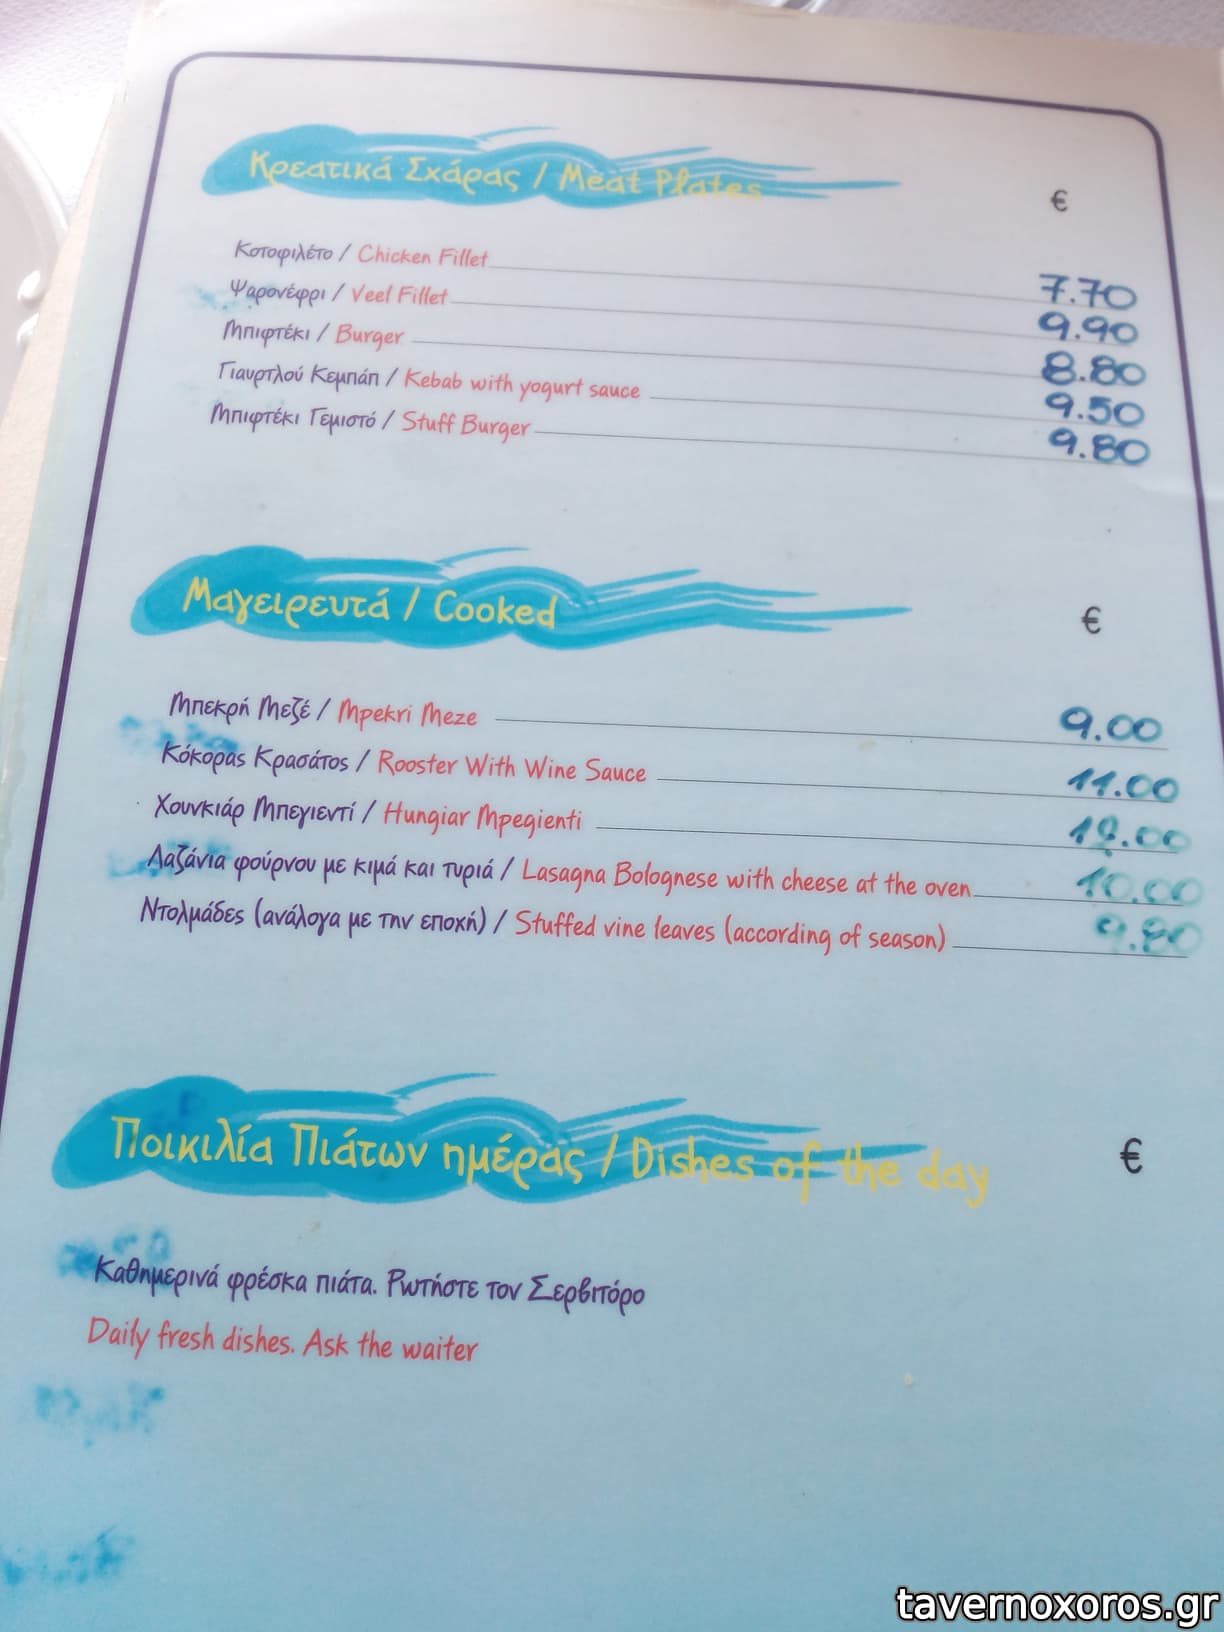 Κρεατικά Σχάρας / Meat Plates €
Κοτοφιλέτο / Chicken Fillet 7.70
Ψαρονέφρι / Veel Fillet 9.90
Μπιφτέκι / Burger 8.80
Γιαυρτλού Κεμπάπ / Kebab with yogurt sauce 9.50
Μπιφτέκι Γεμιστό / Stuff Burger 9.80
Μαγειρευτά / Cooked €
Μπεκρή Μεζέ / Mpekri Meze 9.00
Κόκορας Κρασάτος / Rooster With Wine Sauce 11.00
Χουνκιάρ Μπεγιεντί / Hungiar Mpegienti
Λαζάνια φούρνου με κιμά και τυριά / Lasagna Bolognese with cheese at the oven 10.00
Ντολμάδες (ανάλογα με την εποχή) / Stuffed vine leaves (according of season) 9.80
Ποικιλία Πιάτων ημέρας / Dishes of the day €
Καθημερινά φρέσκα πιάτα. Ρωτήστε τον Σερβιτόρο
Daily fresh dishes. Ask the waiter
tavernoxoros.gr